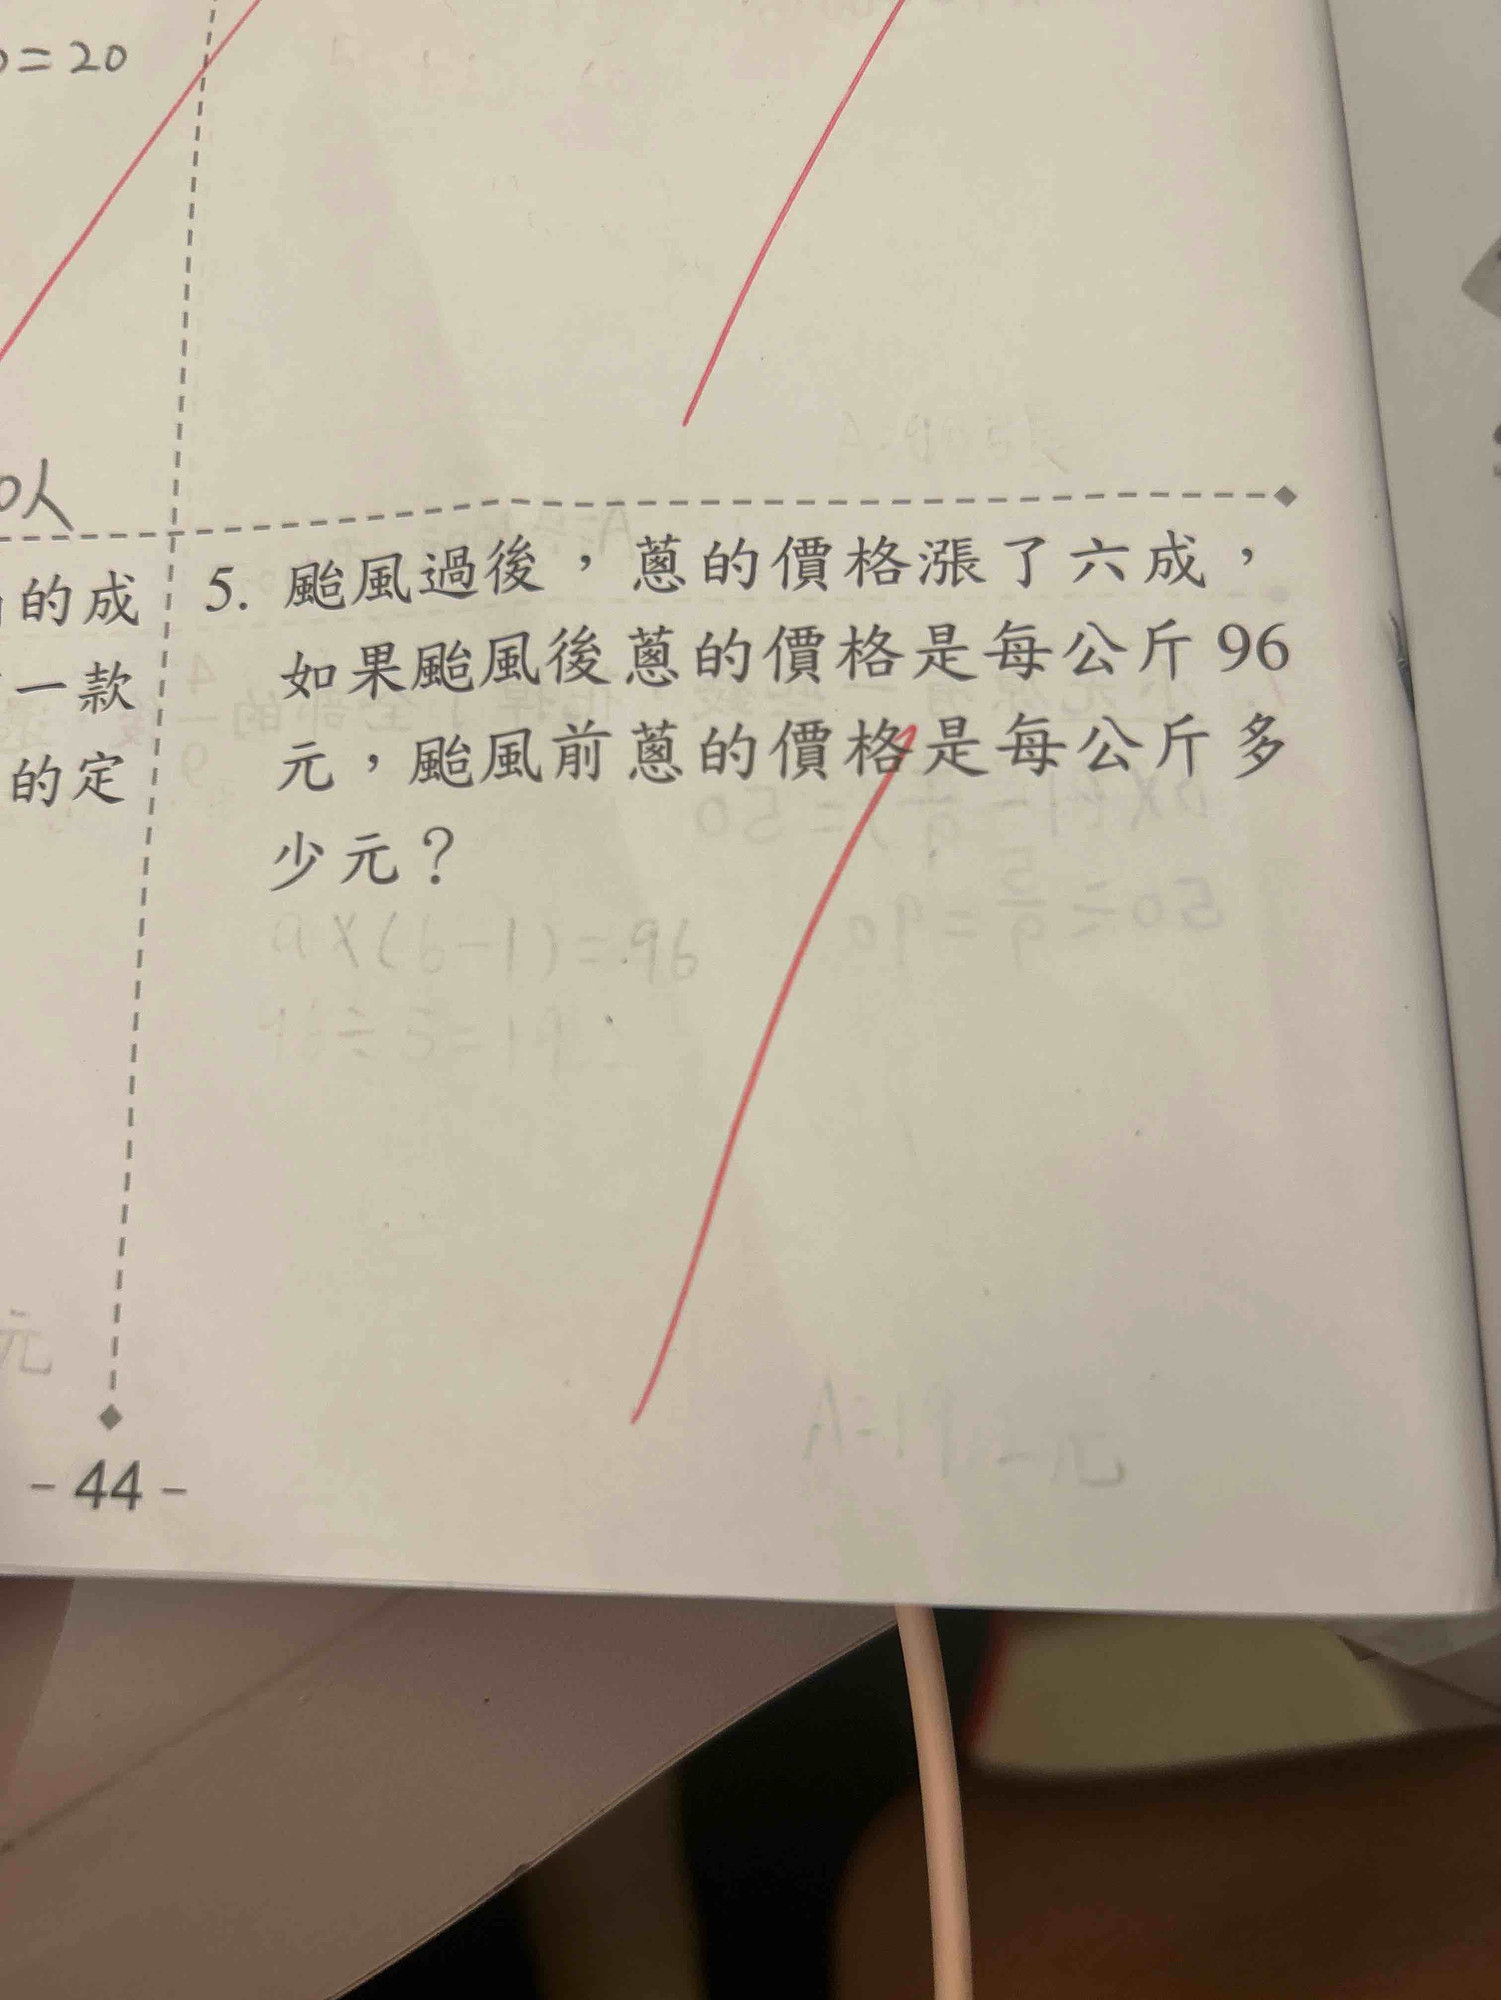 = 20
人
的成
一款
的定
5. 颱風過後，蔥的價格漲了六成，
如果颱風後蔥的價格是每公斤 96
元，颱風前蔥的價格是每公斤多
少元？
元
- 44 -